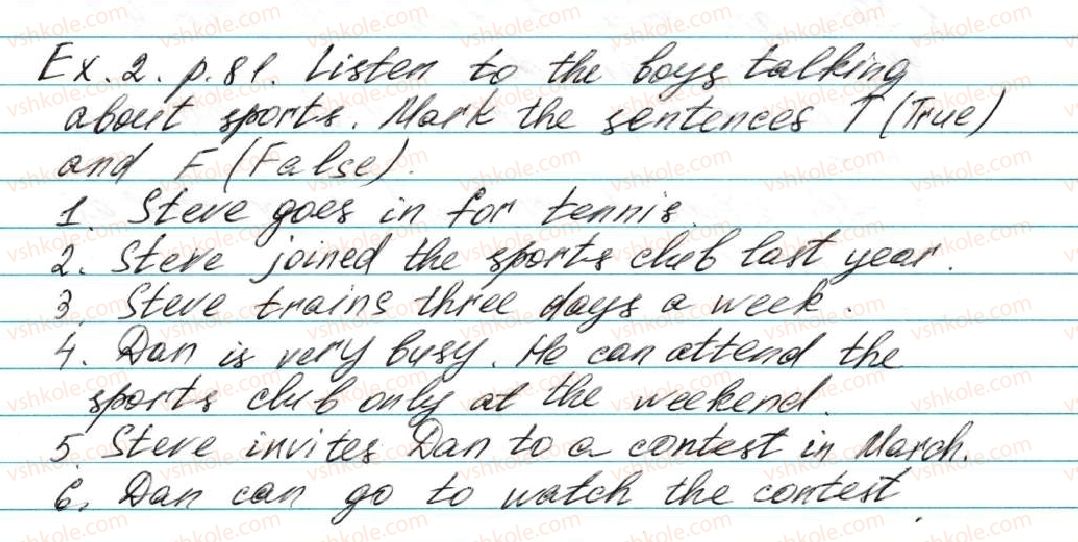 Ex. 2. p. 81. Listen to the boys talking
about sports. Mark the sentences T (True)
and F (False).
1. Steve goes in for tennis.
2. Steve joined the sports club last year.
3. Steve trains three days a week.
4. Dan is very busy. He can attend the
sports club only at the weekend.
5. Steve invites Dan to a contest in March.
6. Dan can go to watch the contest.